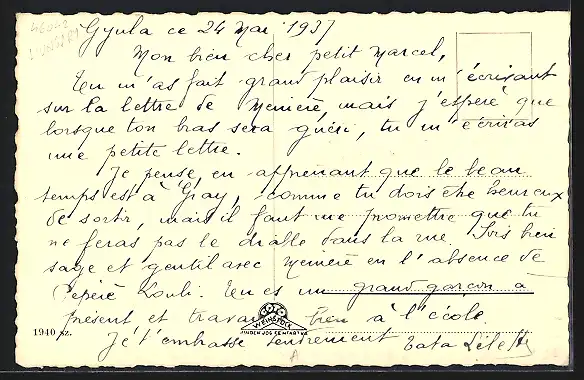 46042
Gyula ce 24 Mai 1937
Mon bien cher petit Marcel,
Tu m'as fait grand plaisir en m'écrivant
sur la lettre de Mémère, mais j'espère que
lorsque ton bras sera guéri, tu m'écriras
une petite lettre.
Je pense, en apprenant que le beau
temps est à Gray, comme tu dois être heureux
de sortir, mais il faut me promettre que tu
ne feras pas le diable dans la rue. Sois bien
sage et gentil avec Mémère en l'absence de
Pépère Louli. Tu es un grand garçon à
présent et travaille bien à l'école.
Je t'embrasse tendrement Tata Lilette
WEINSTOCK
1940 sz.
A